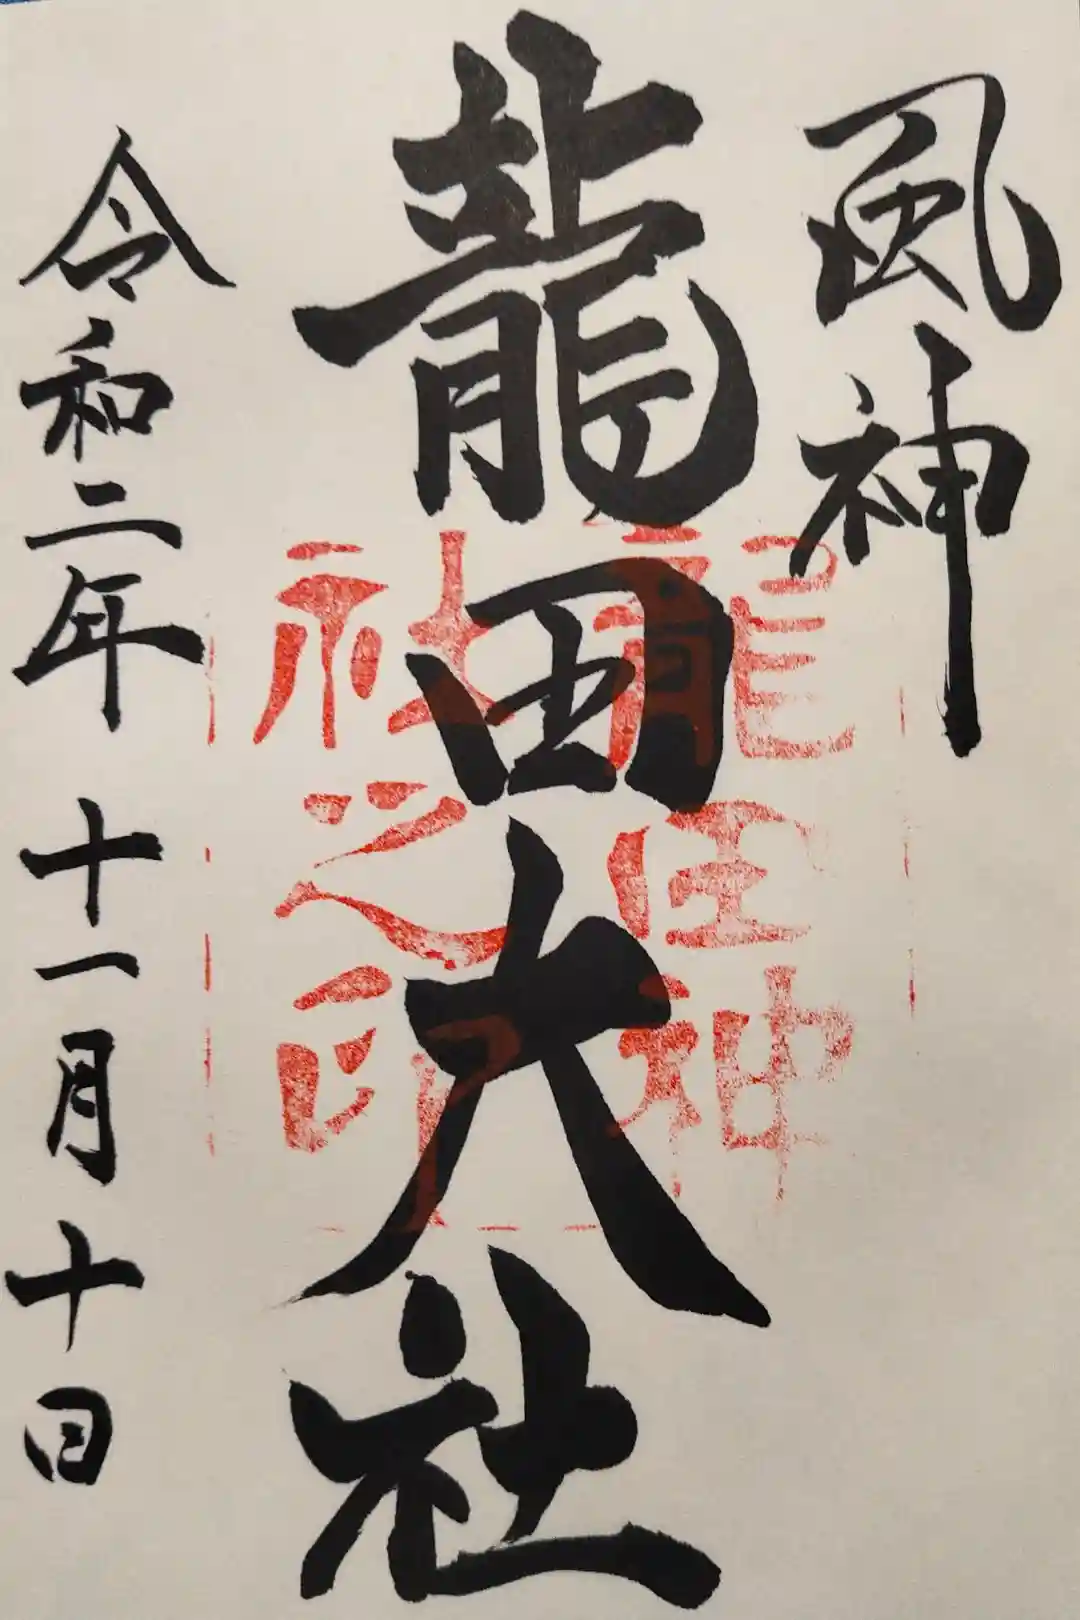 風神
龍田大社
令和二年十一月十日
龍田神
社之印